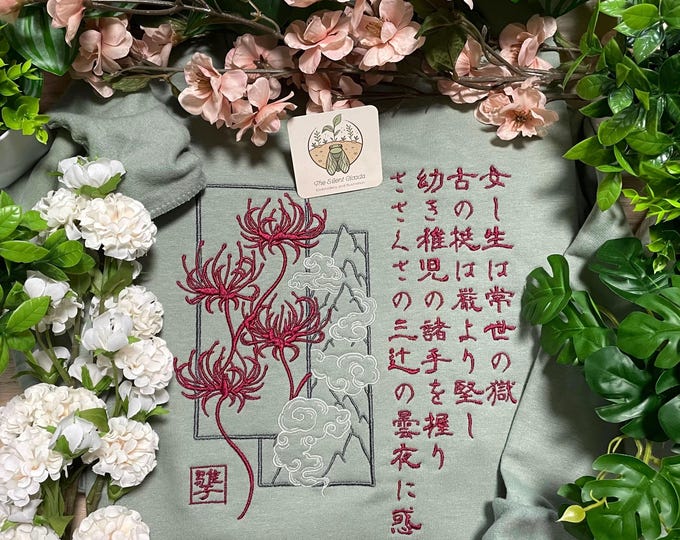 The Silent Cicada
女し生は常世の獄
古の挺は厳より堅し
幼き稚児の諸手を握り
の三辻の曇夜に惑